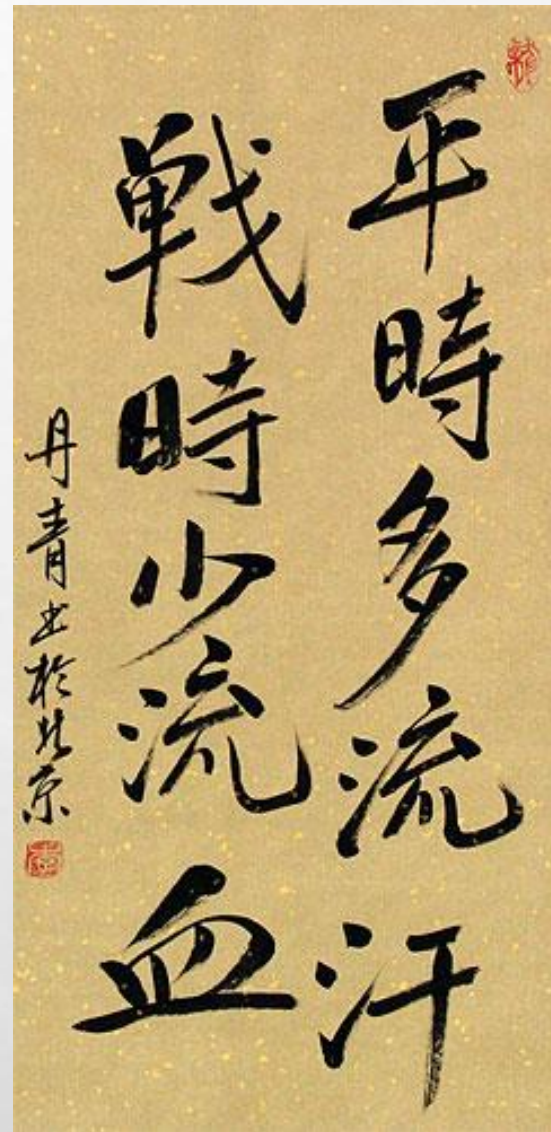 平時多流汗
戦時少流血
丹青书於北京